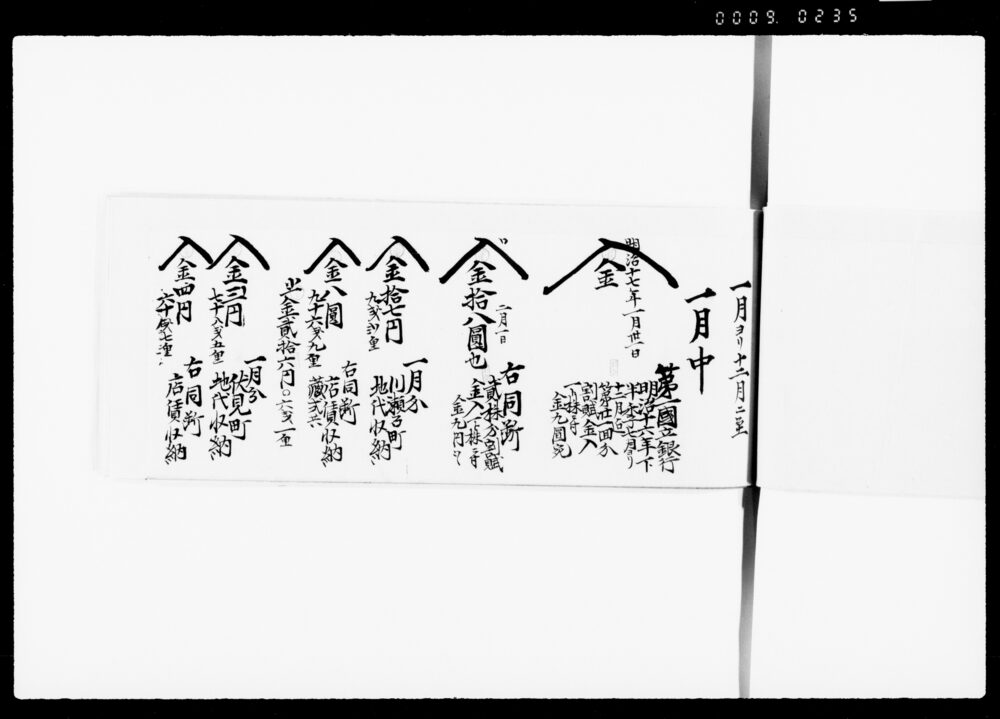 0009. 0235
一月ヨリ十二月ニ至
一月中
明治十七年一月廿一日
金
第一國立銀行
明治十六年下
半季七月ヨリ
十二月迄
第廿一回分
割賦金入
一株ニ付
金九圓宛
〃
二月一日
金拾八圓也
右同断
貳株分割賦
金入一株ニ付
金九円ツヽ
金拾七円
一月分
川瀬石町
地代収納
金八圓
九十六戔九厘
右同断
店賃収納
藏
〆金貳拾六円〇六戔一厘
金三円
七十八戔五厘
一月分
伏見町
地代収納
金四円
六十戔七厘
右同断
店賃収納